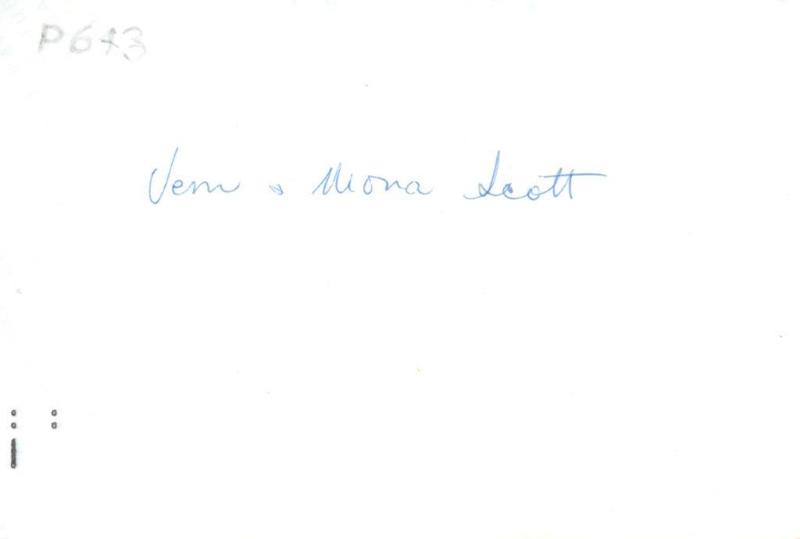 P643
Vern & Mona Scott